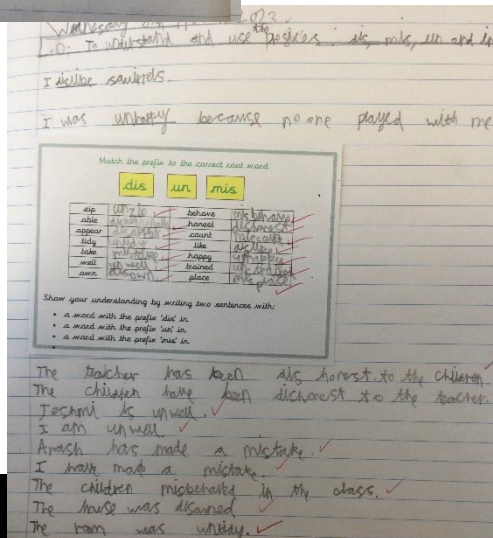 Wednesday 2023.
L.O. To understand and use the prefixes: dis, mis, un and in
I dislike squirrels.
I was unhappy because no one played with me
Match the prefix to the correct root word
dis un mis
zip unzip behave misbehave
able honest dishonest
appear disappear count miscount
tidy untidy like dislike
take mistake happy unhappy
well unwell trained untrained
own disown place misplace
Show your understanding by writing two sentences with:
• a word with the prefix 'dis' in.
• a word with the prefix 'un' in.
• a word with the prefix 'mis' in.
The teacher has been dis honest to the children.
The children have been dishonest to the teacher.
Jeshmi is unwell.
I am unwell.
Arash has made a mistake.
I have made a mistake.
The children misbehaved in the class.
The house was disowned
The room was untidy.